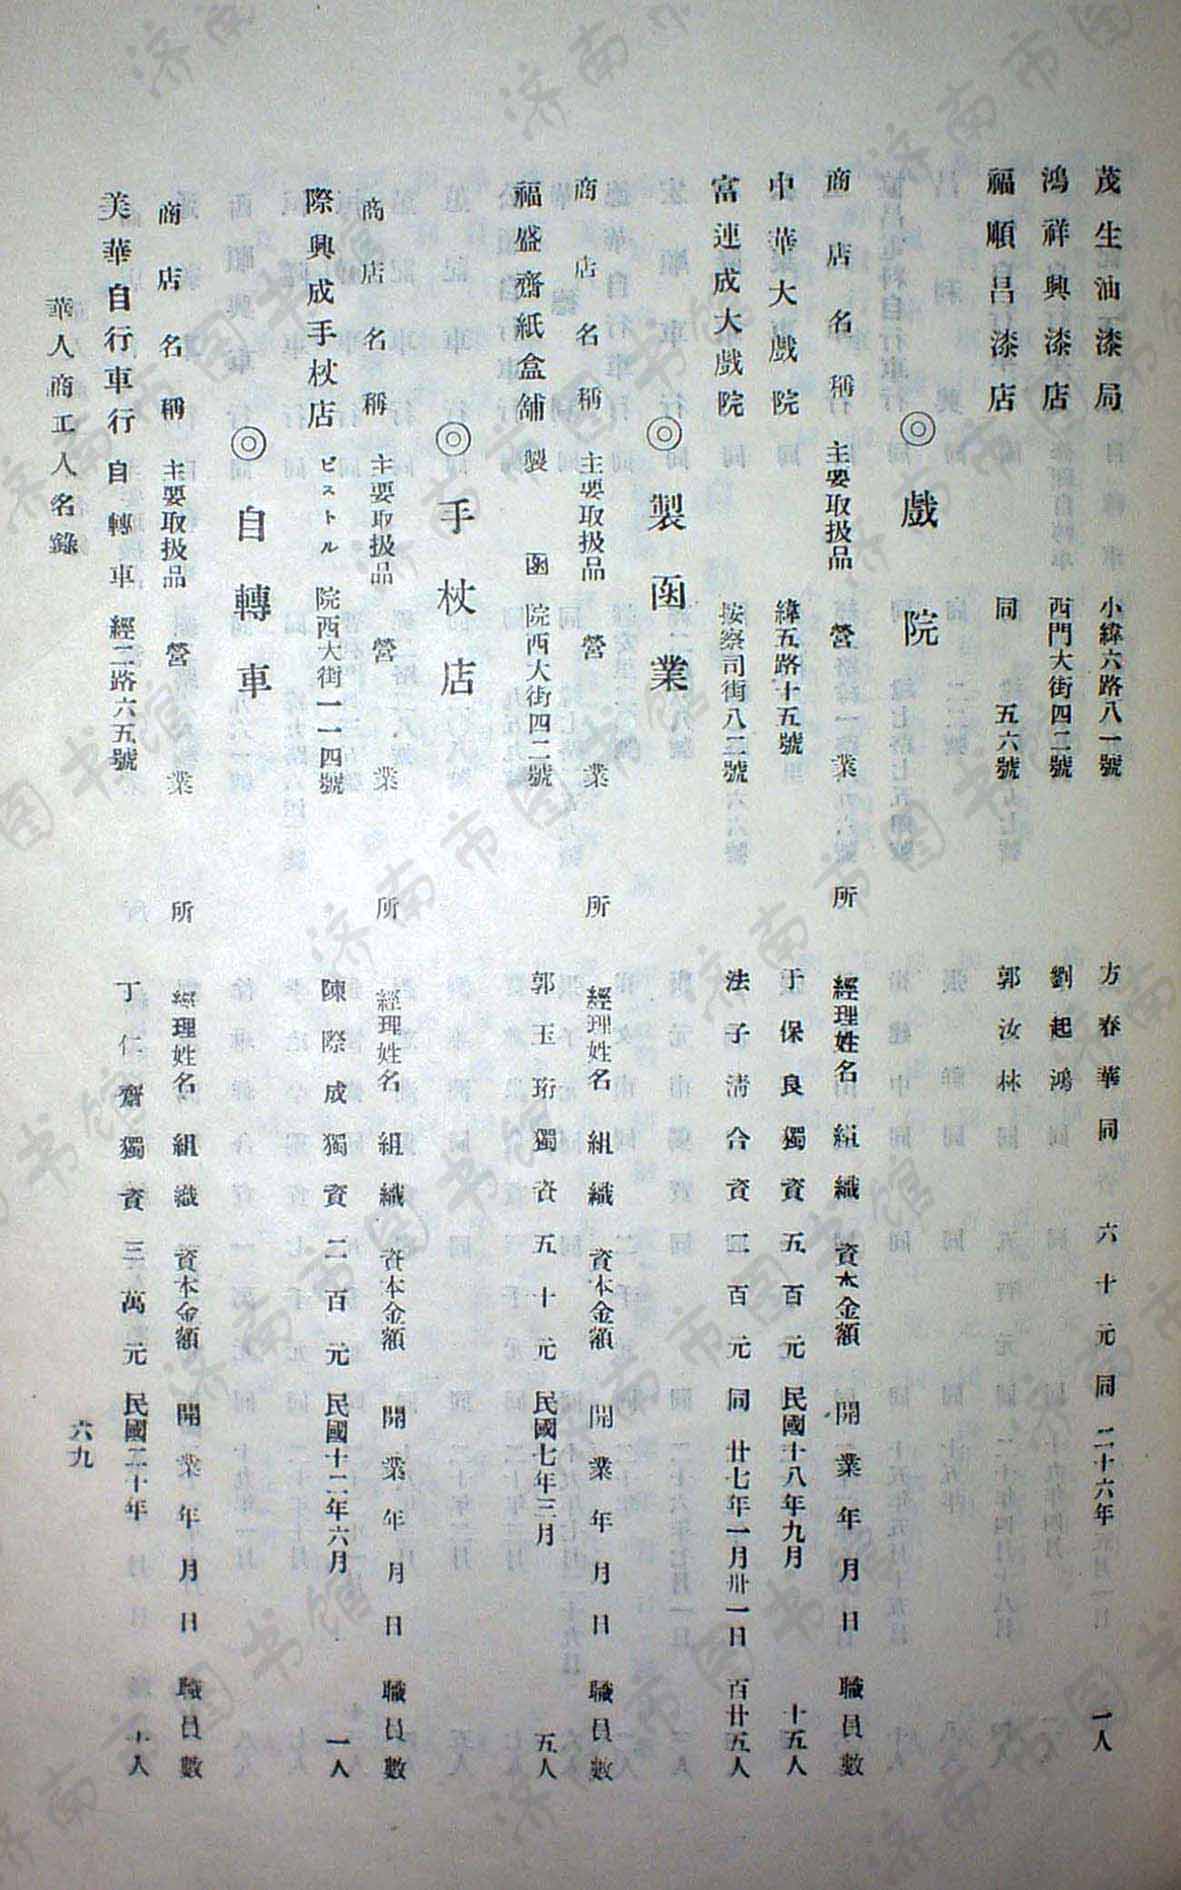 茂生油漆局 小緯六路八一號 方春華 同 六十元 同 二十六年 月一日 一人
鴻祥興漆店 西門大街四二號 劉起鴻
福順昌漆店 同 五六號 郭汝林
◎戲院
商店名稱 主要取扱品 營業所 經理姓名 組織 資本金額 開業年月日 職員數
中華大戲院 緯五路十五號 于保良 獨資 五百元 民國十八年九月 十五人
富連成大戲院 按察司街八二號 法子清 合資 二百元 同廿七年一月卅一日 百廿五人
◎製函業
商店名稱 主要取扱品 營業所 經理姓名 組織 資本金額 開業年月日 職員數
福盛齋紙盒舖 製函 院西大街四二號 郭玉珩 獨資 五十元 民國七年三月 五人
◎手杖店
商店名稱 主要取扱品 營業所 經理姓名 組織 資本金額 開業年月日 職員數
際興成手杖店 ピストル 院西大街一一四號 陳際成 獨資 二百元 民國十二年六月 一人
◎自轉車
商店名稱 主要取扱品 營業所 經理姓名 組織 資本金額 開業年月日 職員數
美華自行車行 自轉車 經二路六五號 丁仁齋 獨資 三萬元 民國二十年 十人
華人商工人名錄
六九
济南市图书馆